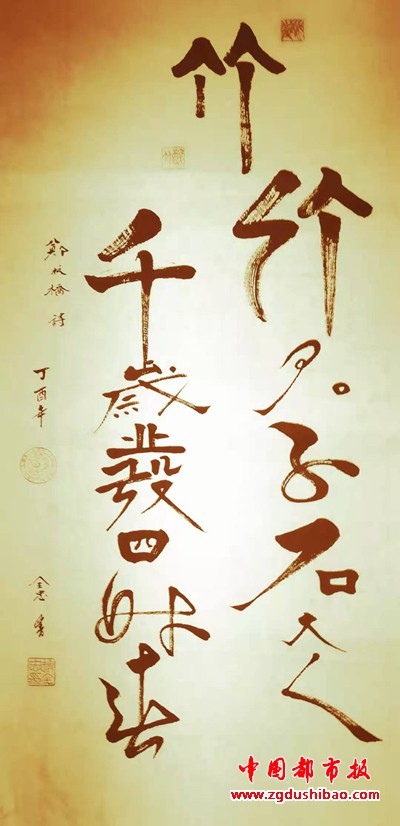 竹
竹君子石大人
千歲發四時春
鄭板橋詩
丁酉年
全忠書
中国都市报
www.zgdushibao.com